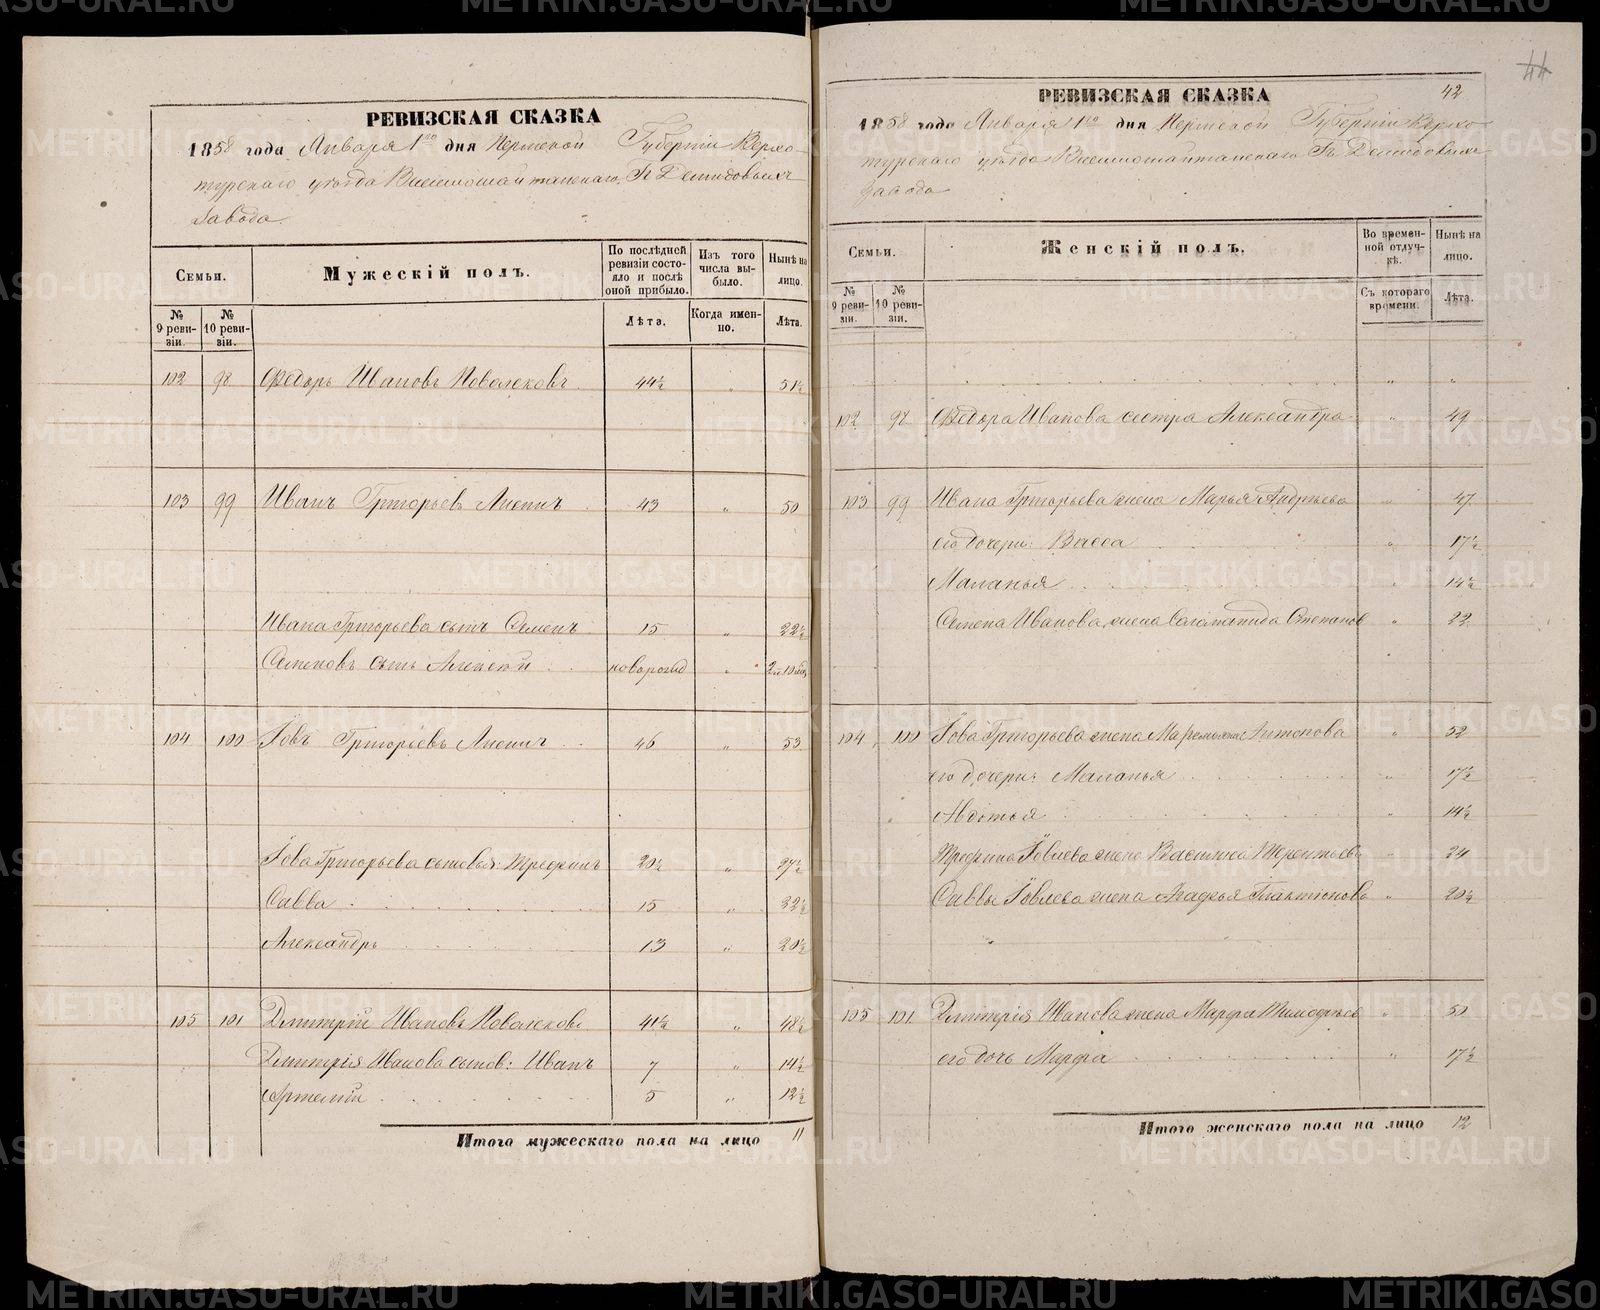 РЕВИЗСКАЯ СКАЗКА
1858 года Января 1го дня Пермской Губернiи Верхо-
турскаго уѣзда Висимошайтанскаго Г.г. Демидовыхъ
Завода
Семьи.
Мужескiй полъ.
По послѣдней ревизiи состояло и послѣ оной прибыло.
Изъ того числа выбыло.
Нынѣ на лицо.
№ 9 ревизiи.
№ 10 ревизiи.
Лѣта.
Когда именно.
Лѣта.
102 98 Ѳедоръ Ивановъ 44½ „ 51½
103 99 Иванъ Григорьевъ 43 „ 50
Ивана Григорьева сынъ Семенъ 15 „ 22½
Семеновъ сынъ Алексѣй новорожд „
104 100 Iовъ Григорiевъ 46 „ 53
Iова Григорьева сыновья: Трефилъ 20½ „ 27½
Савва 15 „ 22½
Александръ 13 „ 20½
105 101 Дмитрiй Ивановъ 41½ „ 48½
Дмитрiя Иванова сынов: Иванъ 7 „ 14½
Артемiй 5 „ 12½
Итого мужескаго пола на лицо 11
44
42
РЕВИЗСКАЯ СКАЗКА
1858 года Января 1го дня Пермской Губернiи Верхо-
турскаго уѣзда Висимошайтанскаго Г.г. Демидовыхъ
завода
Семьи.
Женскiй полъ.
Во временной отлучкѣ.
Нынѣ на лицо.
№ 9 ревизiи.
№ 10 ревизiи.
Съ котораго времени.
Лѣта.
102 98 Ѳедора Иванова сестра Александра „ 49
103 99 Ивана Григорьева жена Марья Андрѣева „ 47
его дочери: Васса „ 17½
Маланья „ 14½
Семена Иванова жена Степанов „ 22
104 100 Iова Григорьева жена Маремьяна Антонова „ 52
его дочери: Маланья „ 17½
Авдотья „ 14½
Трефила Iовлева жена Терентьева „ 24
Саввы Iовлева жена Агафья „ 20½
105 101 Дмитрiя Иванова жена Марфа Тимофѣев „ 50
его дочь Марфа „ 17½
Итого женскаго пола на лицо 12
METRIKI.GASO-URAL.RU